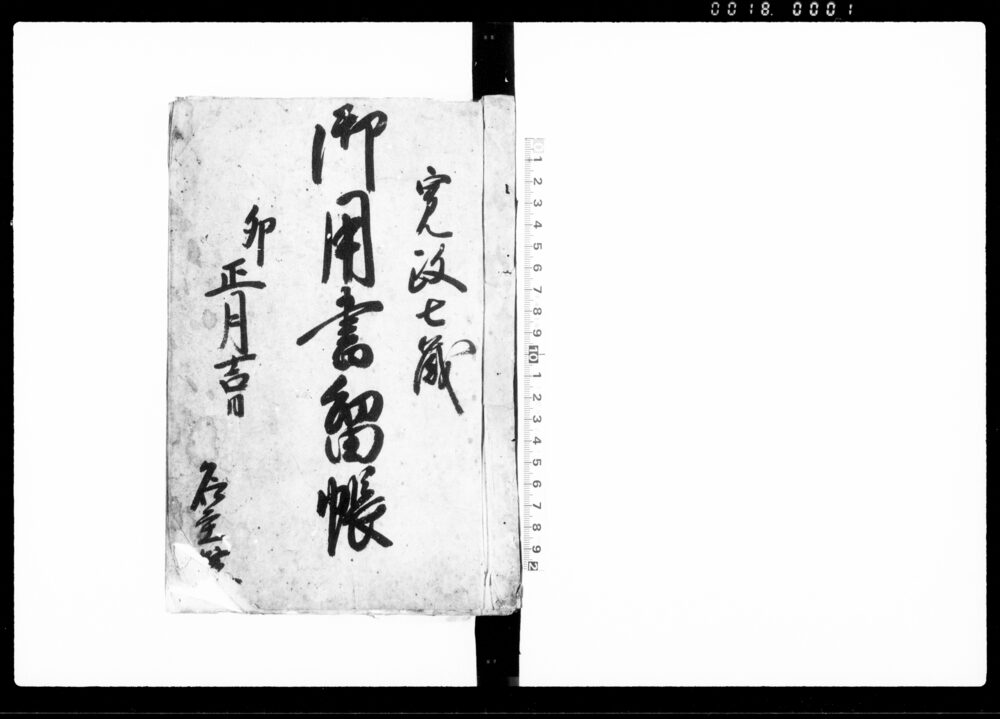 0018 0001
寛政七歳
御用書留帳
卯
正月吉日
名主
0 1 2 3 4 5 6 7 8 9 10 1 2 3 4 5 6 7 8 9 2